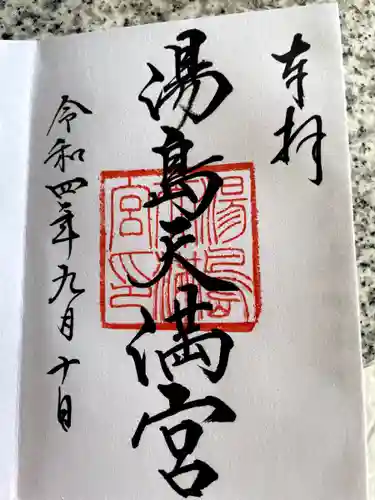 奉拝
湯島天満宮
令和四年九月十日
湯島天満宮印